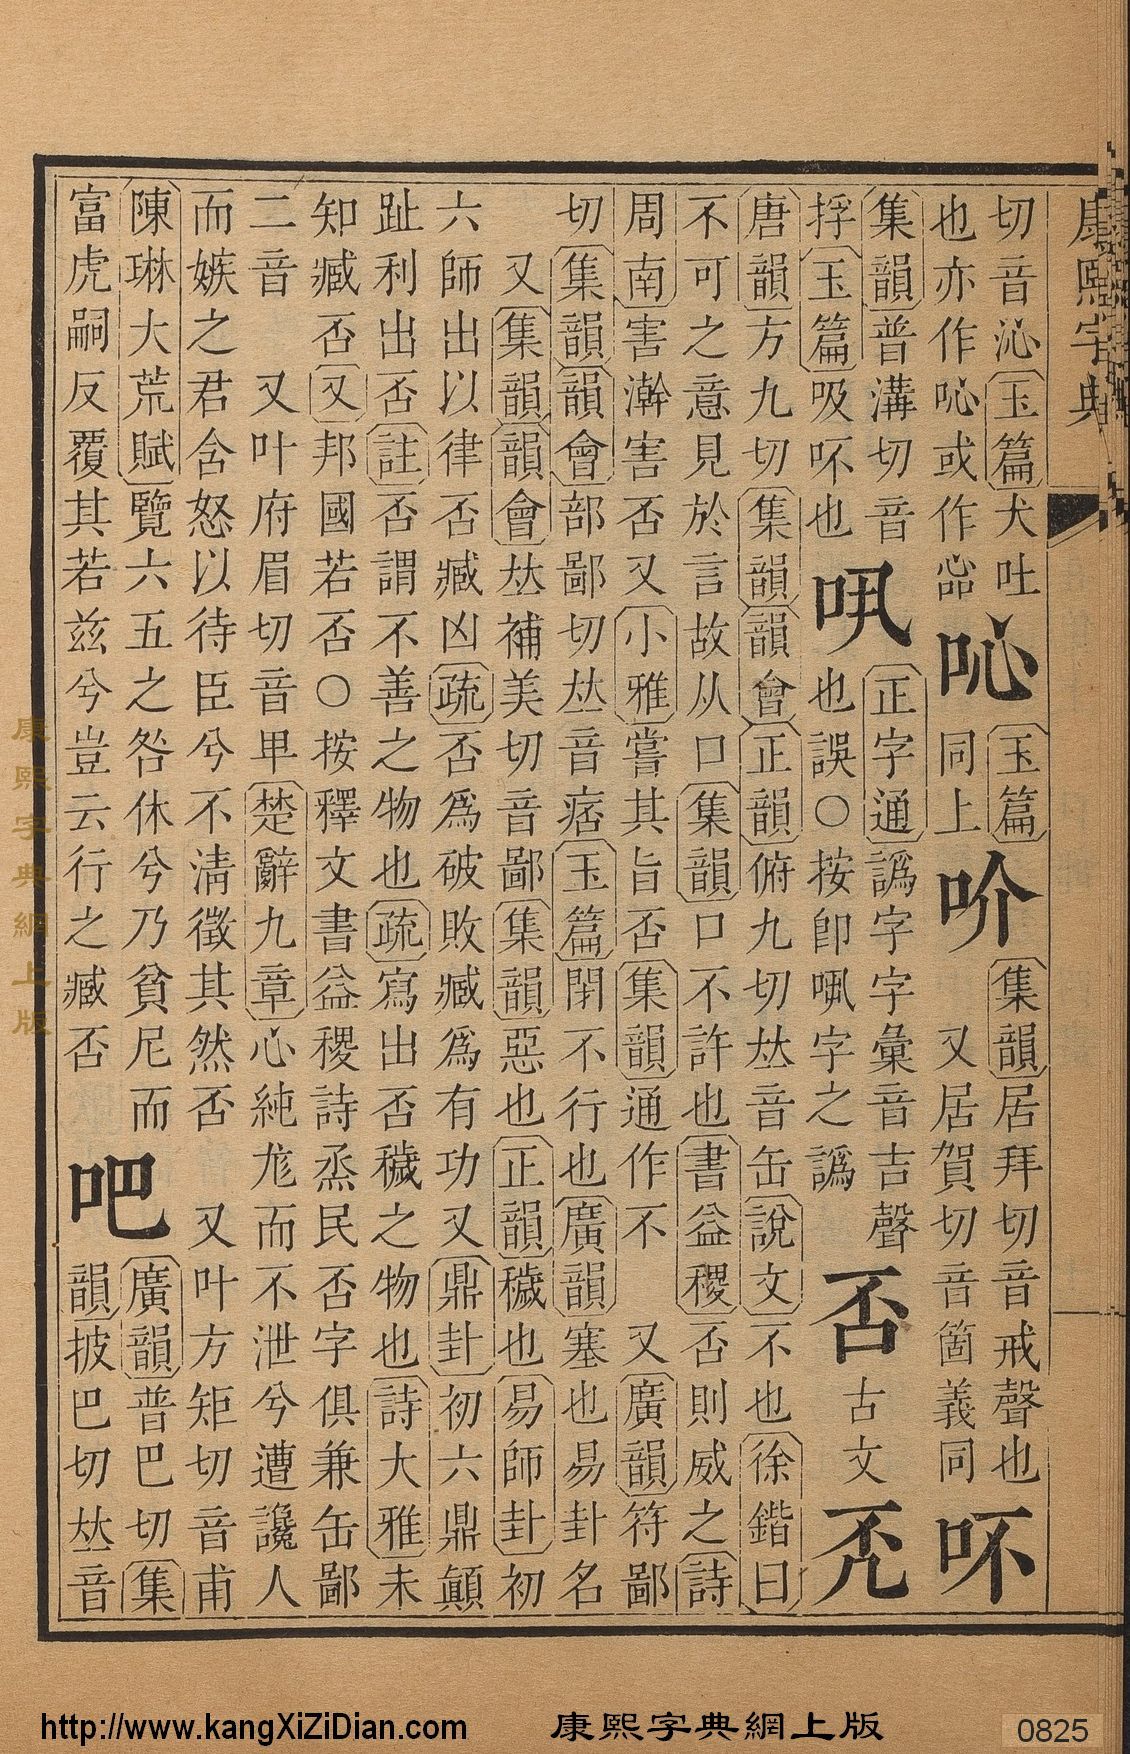 康熙字典
切音沁玉篇犬吐
也亦作吣或作
吣
玉篇
同上
吤
集韻居拜切音戒聲也
又居賀切音箇義同
吥
集韻普溝切音
捊玉篇吸吥也
正字通譌字字彙音吉聲
也誤○按卽字之譌
否
古文
唐韻方九切集韻韻會正韻俯九切𠀤音缶說文不也徐鍇曰
不可之意見於言故从口集韻口不許也書益稷否則威之詩
周南害澣害否又小雅嘗其旨否集韻通作不 又廣韻符鄙
切集韻韻會部鄙切𠀤音痞玉篇閉不行也廣韻塞也易卦名
又集韻韻會𠀤補美切音鄙集韻惡也正韻穢也易師卦初
六師出以律否臧凶疏否爲破敗臧爲有功又鼎卦初六鼎顚
趾利出否註否謂不善之物也疏寫出否穢之物也詩大雅未
知臧否又邦國若否○按釋文書益稷詩烝民否字俱兼缶鄙
二音 又叶府眉切音𤰞楚辭九章心純厖而不泄兮遭讒人
而嫉之君含怒以待臣兮不淸徵其然否 又叶方矩切音甫
陳琳大荒賦覽六五之咎休兮乃貧尼而
富虎嗣反覆其若兹兮豈云行之臧否
吧
廣韻普巴切集
韻披巴切𠀤音
康熙字典網上版
http://www.kangXiZiDian.com 康熙字典網上版 0825